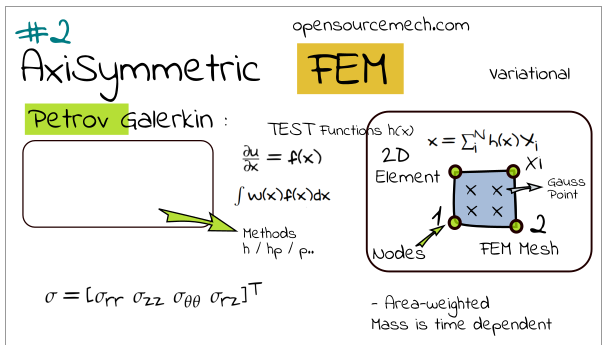 #2
opensourcemech.com
AxiSymmetric FEM
Variational
Petrov Galerkin :
TEST Functions h(x)
∂u/∂x = f(x)
∫ w(x)f(x)dx
Methods
h / hp / p..
x = ∑ᵢᴺ h(x)Xᵢ
2D
Element
Xi
Gauss
Point
1
2
Nodes
FEM Mesh
σ = [σrr σzz σθθ σrz]ᵀ
- Area-weighted
Mass is time dependent